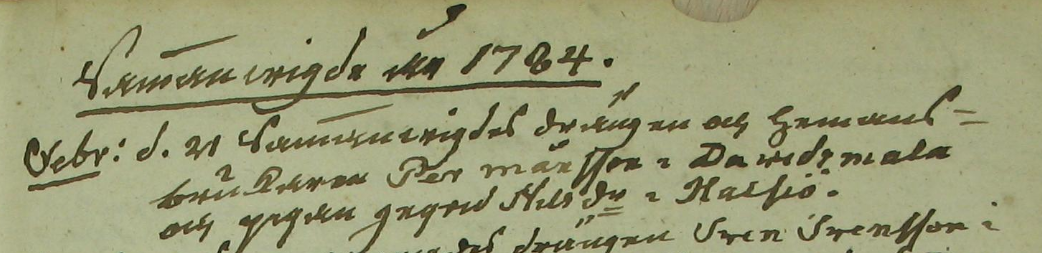 Samanwigde år 1784.
Febr: d. 21 Sammanwigdes drängen och Hemans=
brukaren Per Månsson i Davidsmåla
och pigan Nilsdr i Halsiö.
drängen Sven Svensson i